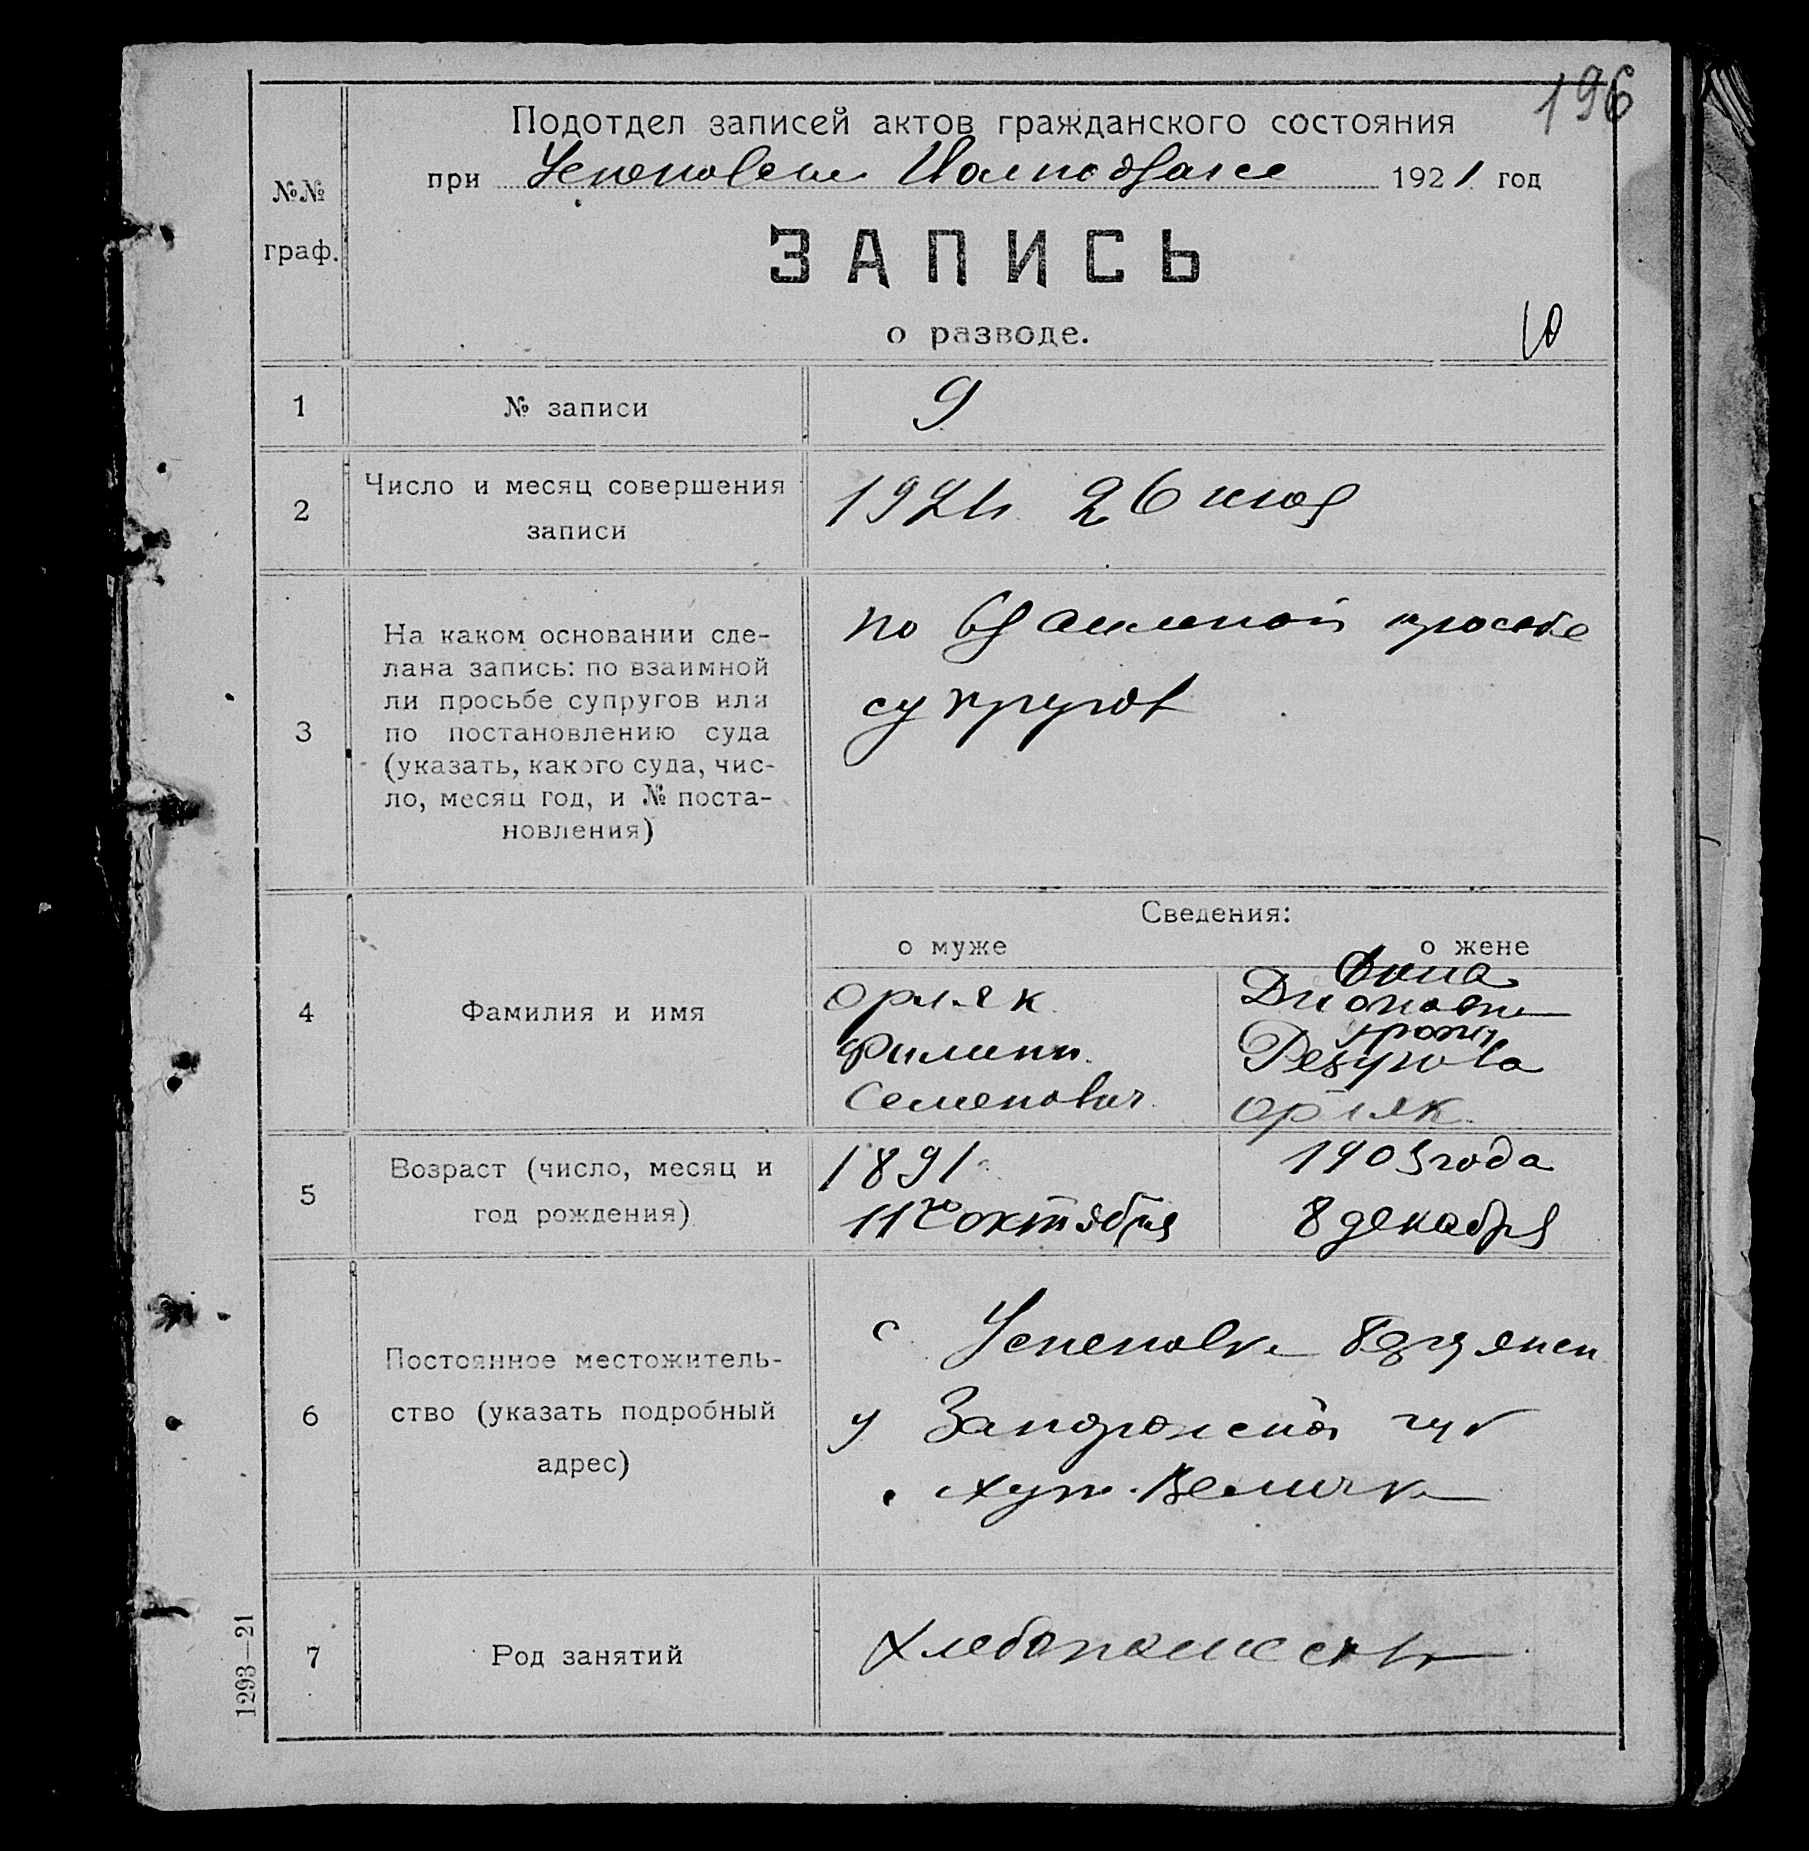 196
Подотдел записей актов гражданского состояния
при Успеновском 1921 год
№№
граф.
ЗАПИСЬ
о разводе.
10
1 № записи 9
2 Число и месяц совершения
записи
1921 26
3 На каком основании сде-
лана запись: по взаимной
ли просьбе супругов или
по постановлению суда
(указать, какого суда, чис-
ло, месяц год, и № поста-
новления)
по взаимной просьбе
супругов
Сведения:
о муже о жене
4 Фамилия и имя
Орляк
Филипп
Семенович
Анна
Орляк
5 Возраст (число, месяц и
год рождения)
1891
11го октября
1903 года
8 декабря
6 Постоянное местожитель-
ство (указать подробный
адрес)
с Успеновка
у Запорожской губ
хут. Величка
7 Род занятий
Хлебопашество
1293—21